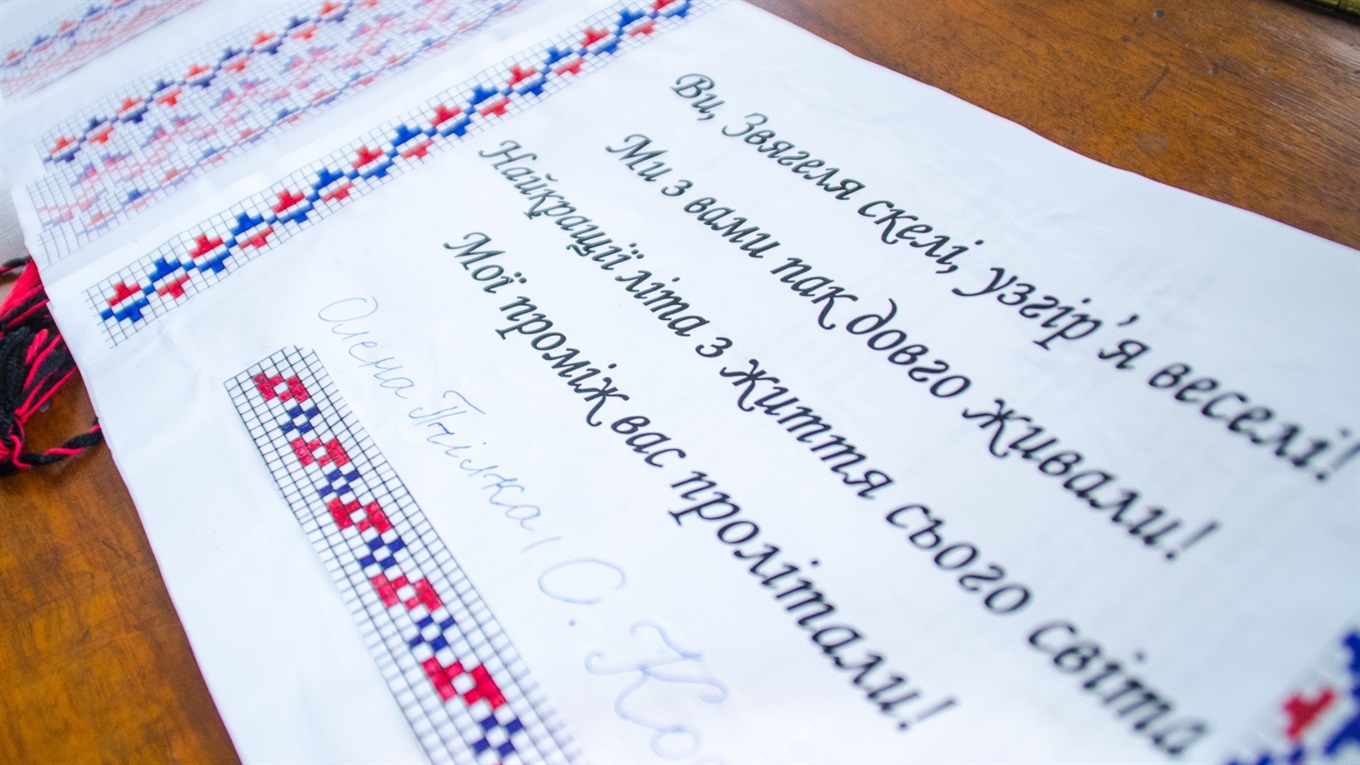 Ви, Звягеля скелі, узгір'я веселі!
Ми з вами пак довго живали!
Найкращії літа з життя сього світа
Мої проміж вас пролітали!
Олена Пчілка, С. Ко